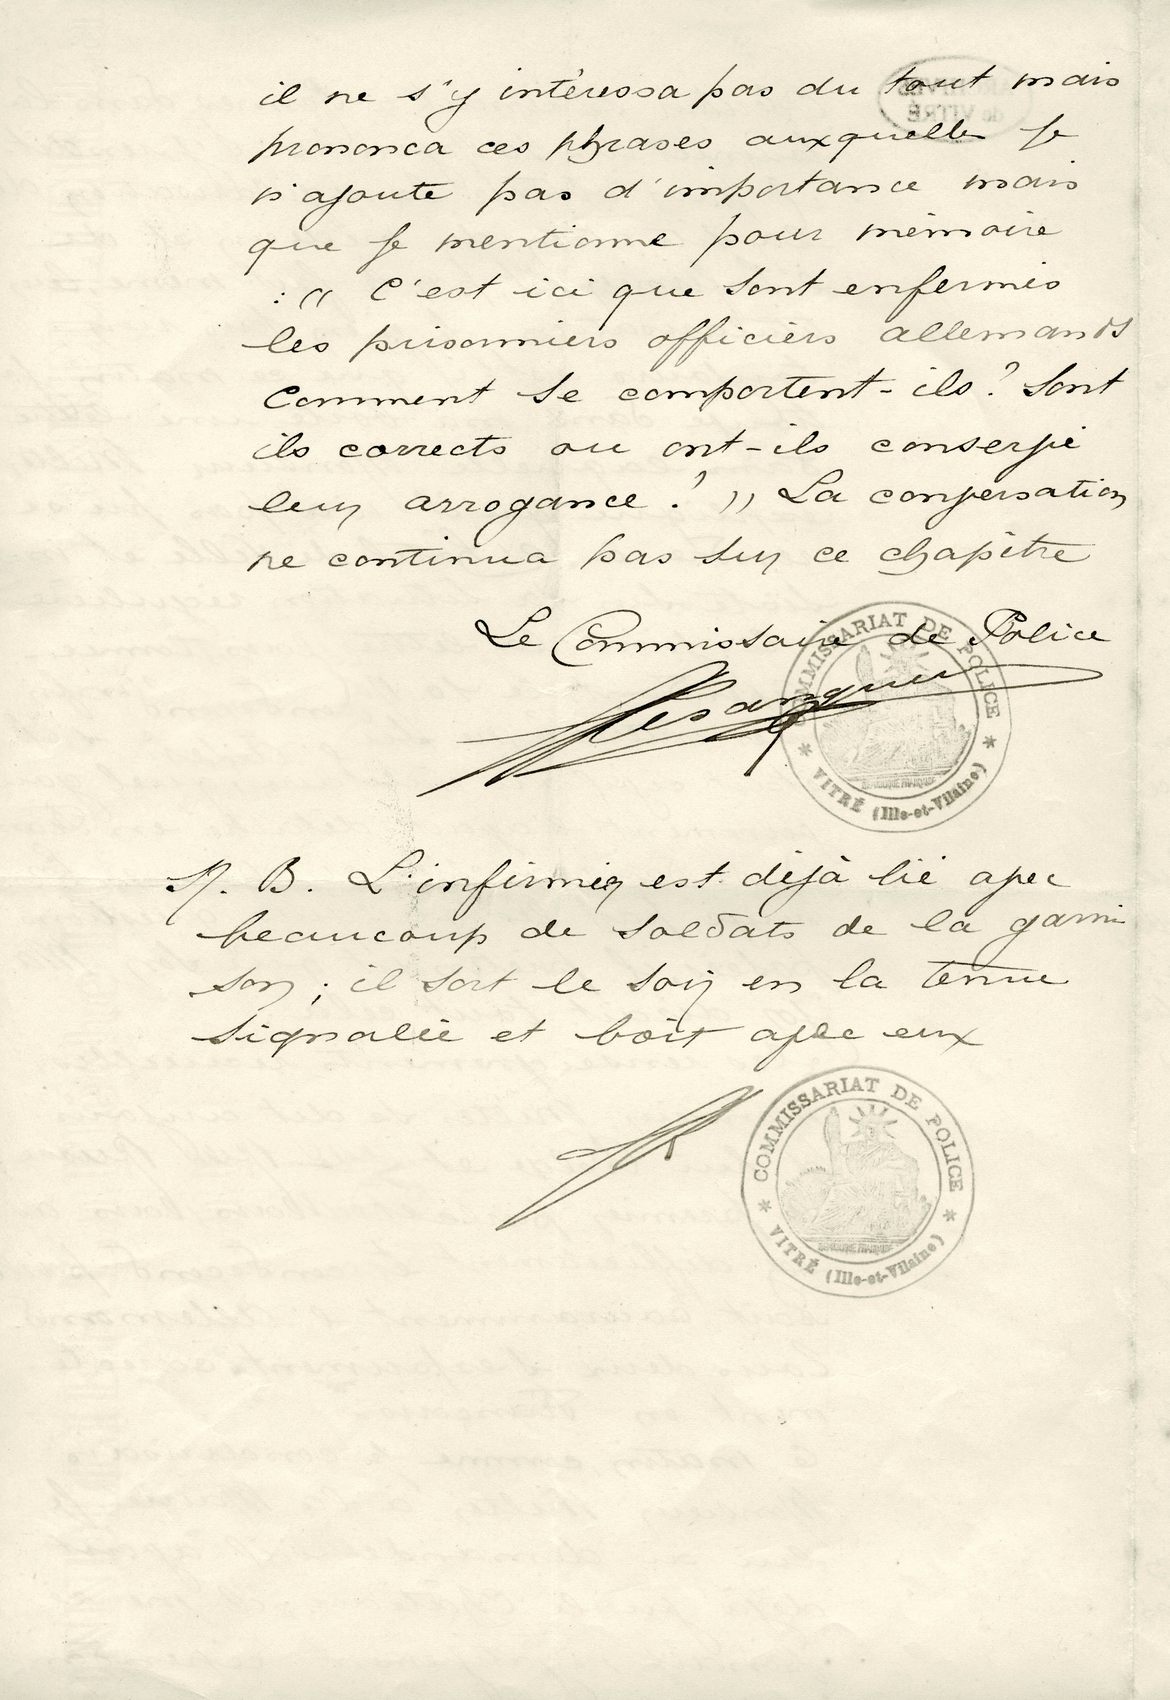 il ne s'y intéressa pas du tout mais
prononca ces phrases auxquelles je
n'ajoute pas d'importance mais
que je mentionne pour mémoire
: " C'est ici que sont enfermés
les prisonniers officiers allemands
Comment se comportent-ils? Sont
ils corrects ou ont-ils conservé
leur arrogance? " La conversation
ne continua pas sur ce chapître
Le Commissaire de Police
COMMISSARIAT DE POLICE
* VITRÉ (Ille-et-Vilaine) *
N. B. L'infirmier est déjà lié avec
beaucoup de soldats de la garni
son ; il sort le soir en la tenue
signalée et boit avec eux
COMMISSARIAT DE POLICE
* VITRÉ (Ille-et-Vilaine) *